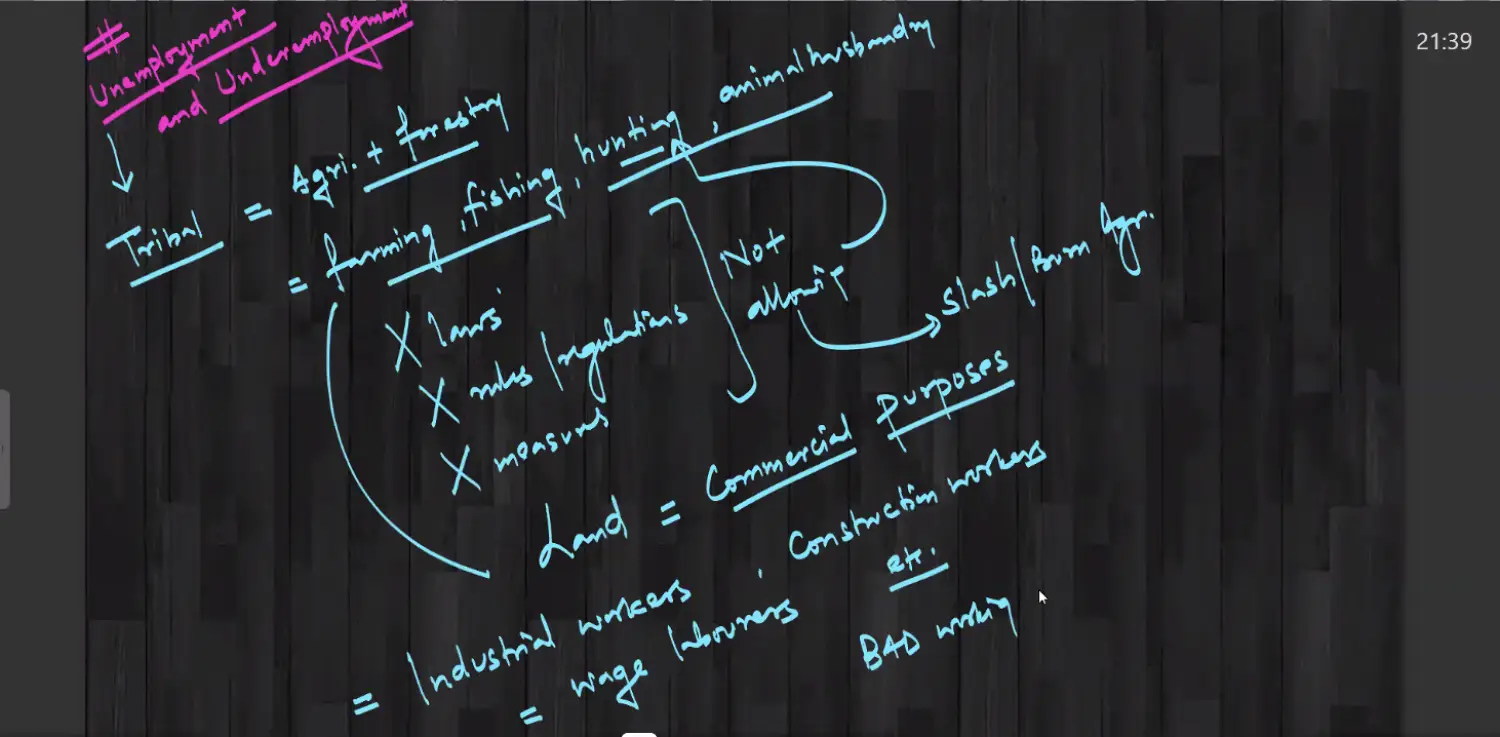 #
Unemployment
and Underemployment
21:39
Tribal = Agri. + forestry
= farming, fishing, hunting, animal husbandry
X laws
X rules/regulations
X measures
Not
allow
Slash/Burn Agr.
Land = Commercial Purposes
= Industrial workers, Construction workers
etc.
= wage labourers
BAD working